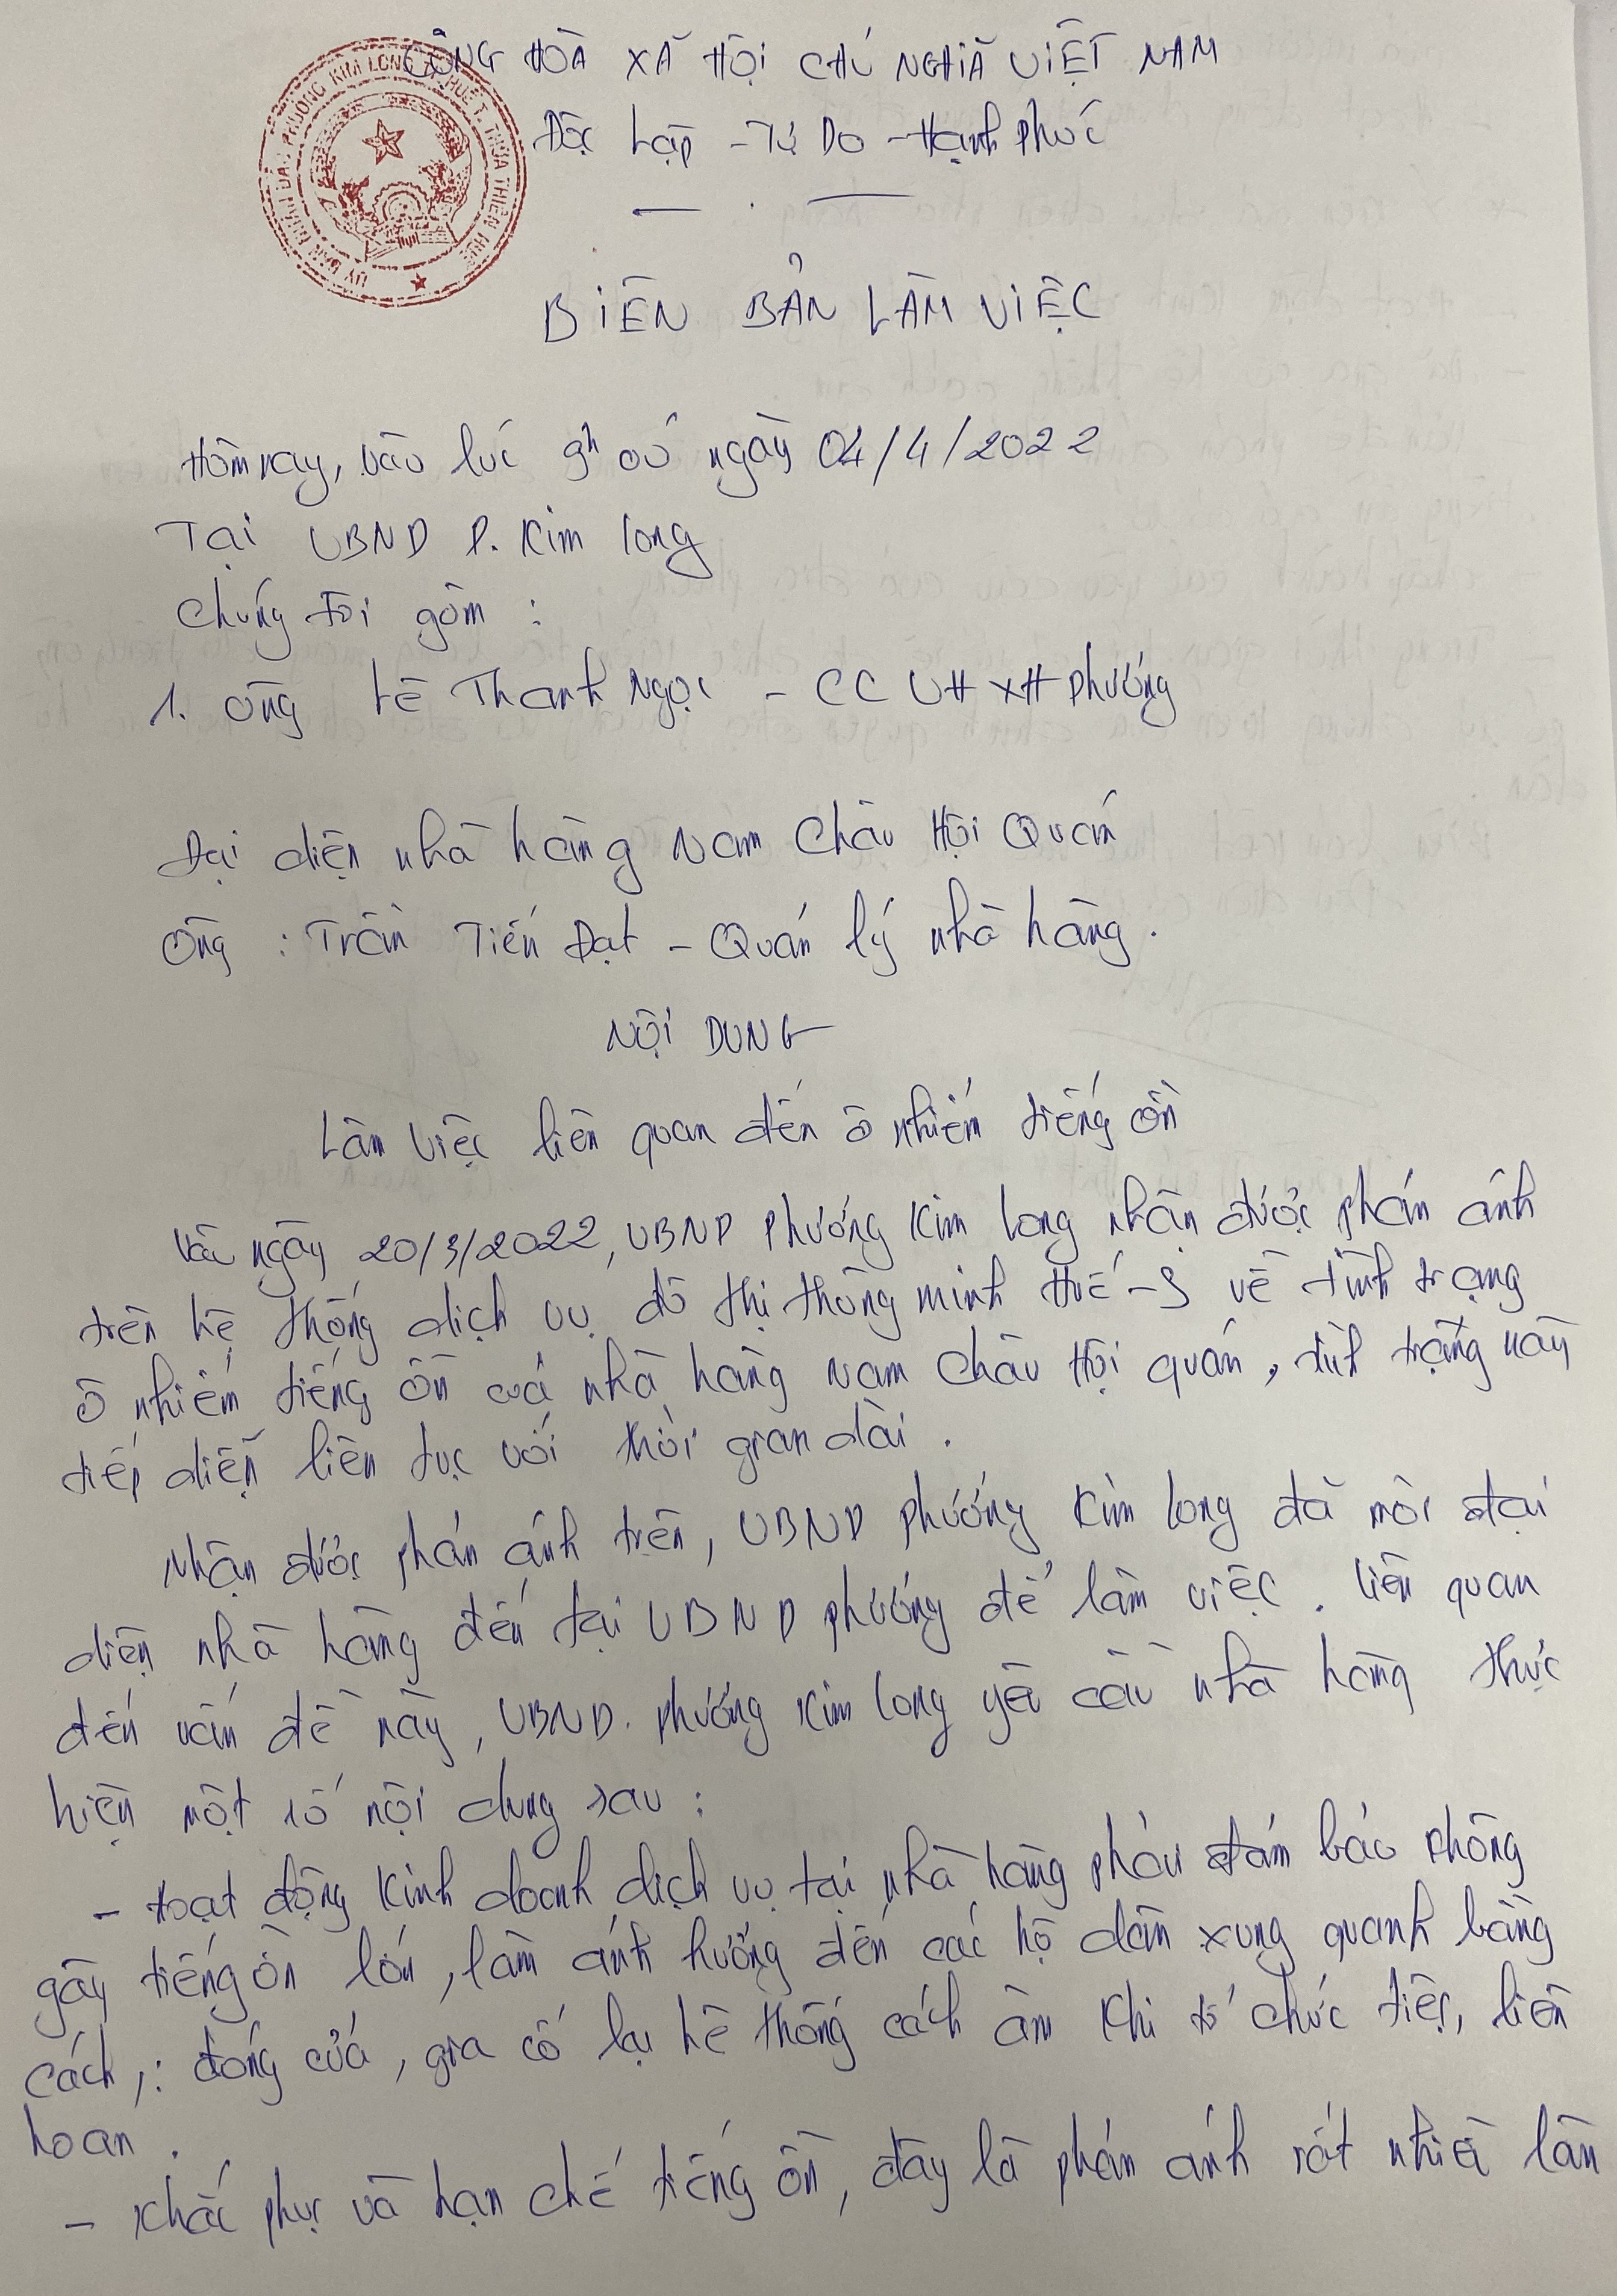 CỘNG HÒA XÃ HỘI CHỦ NGHĨA VIỆT NAM
Độc Lập - Tự Do - Hạnh phúc
ỦY BAN NHÂN DÂN PHƯỜNG KIM LONG HUẾ T. THỪA THIÊN HUẾ
BIÊN BẢN LÀM VIỆC
Hôm nay, vào lúc 9h00 ngày 04/4/2022
Tại UBND P. Kim Long
Chúng tôi gồm :
1. Ông Lê Thanh Ngọc - CC VH XH phường
Đại diện nhà hàng Nam Châu Hội Quán
Ông : Trần Tiến Đạt - Quản lý nhà hàng.
NỘI DUNG
Làm việc liên quan đến ô nhiễm tiếng ồn
Vào ngày 20/3/2022, UBND phường Kim Long nhận được phản ánh
trên hệ thống dịch vụ đô thị thông minh Huế-S về tình trạng
ô nhiễm tiếng ồn của nhà hàng Nam Châu Hội quán, tình trạng này
tiếp diễn liên tục với thời gian dài.
Nhận được phản ánh trên, UBND phường Kim Long đã mời đại
diện nhà hàng đến tại UBND phường để làm việc. Liên quan
đến vấn đề này, UBND. phường Kim Long yêu cầu nhà hàng thực
hiện một số nội dung sau :
- Hoạt động kinh doanh dịch vụ tại nhà hàng phải đảm bảo không
gây tiếng ồn lớn, làm ảnh hưởng đến các hộ dân xung quanh bằng
cách, : đóng cửa, gia cố lại hệ thống cách âm khi tổ chức tiệc, liên
hoan.
- Khắc phục và hạn chế tiếng ồn, đây là phản ánh rất nhiều lần